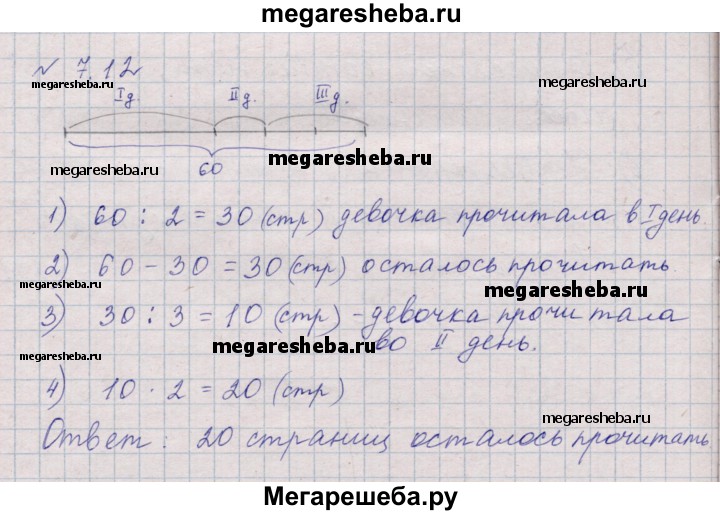 megaresheba.ru
№ 7.12
megaresheba.ru
megaresheba.ru
I д. II д. III д.
megaresheba.ru
megaresheba.ru
60
1) 60 : 2 = 30 (стр) девочка прочитала в I день.
2) 60 - 30 = 30 (стр) осталось прочитать.
megaresheba.ru
megaresheba.ru
3) 30 : 3 = 10 (стр) - девочка прочитала
во II день.
megaresheba.ru
megaresheba.ru
4) 10 · 2 = 20 (стр)
megaresheba.ru
Ответ: 20 страниц осталось прочитать
megaresheba.ru
Мегарешеба.ру